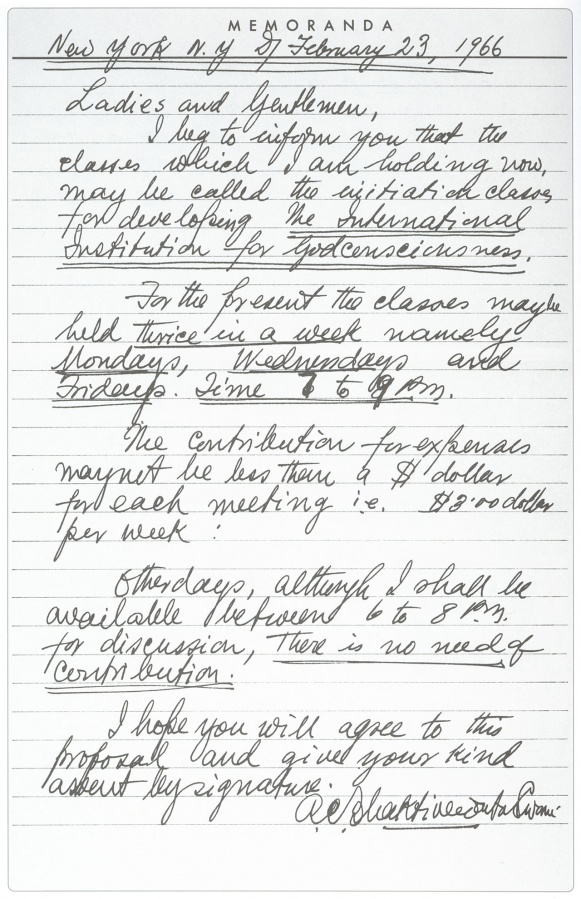 MEMORANDA
New York N.Y D/ February 23, 1966
Ladies and Gentlemen,
I beg to inform you that the
classes which I am holding now,
may be called the initiation classes
for developing The International
Institution for Godconsciousness.
For the present the classes maybe
held thrice in a week namely
Mondays, Wednesdays and
Fridays. Time 7 to 9 P.m.
The contribution for expenses
maynot be less than a $ dollar
for each meeting i.e. $3.00 dollar
per week :
Otherdays, although I shall be
available between 6 to 8 P.m.
for discussion, There is no need of
contribution.
I hope you will agree to this
proposal and give your kind
assent by signature.
A.C. Bhaktivedanta Swami